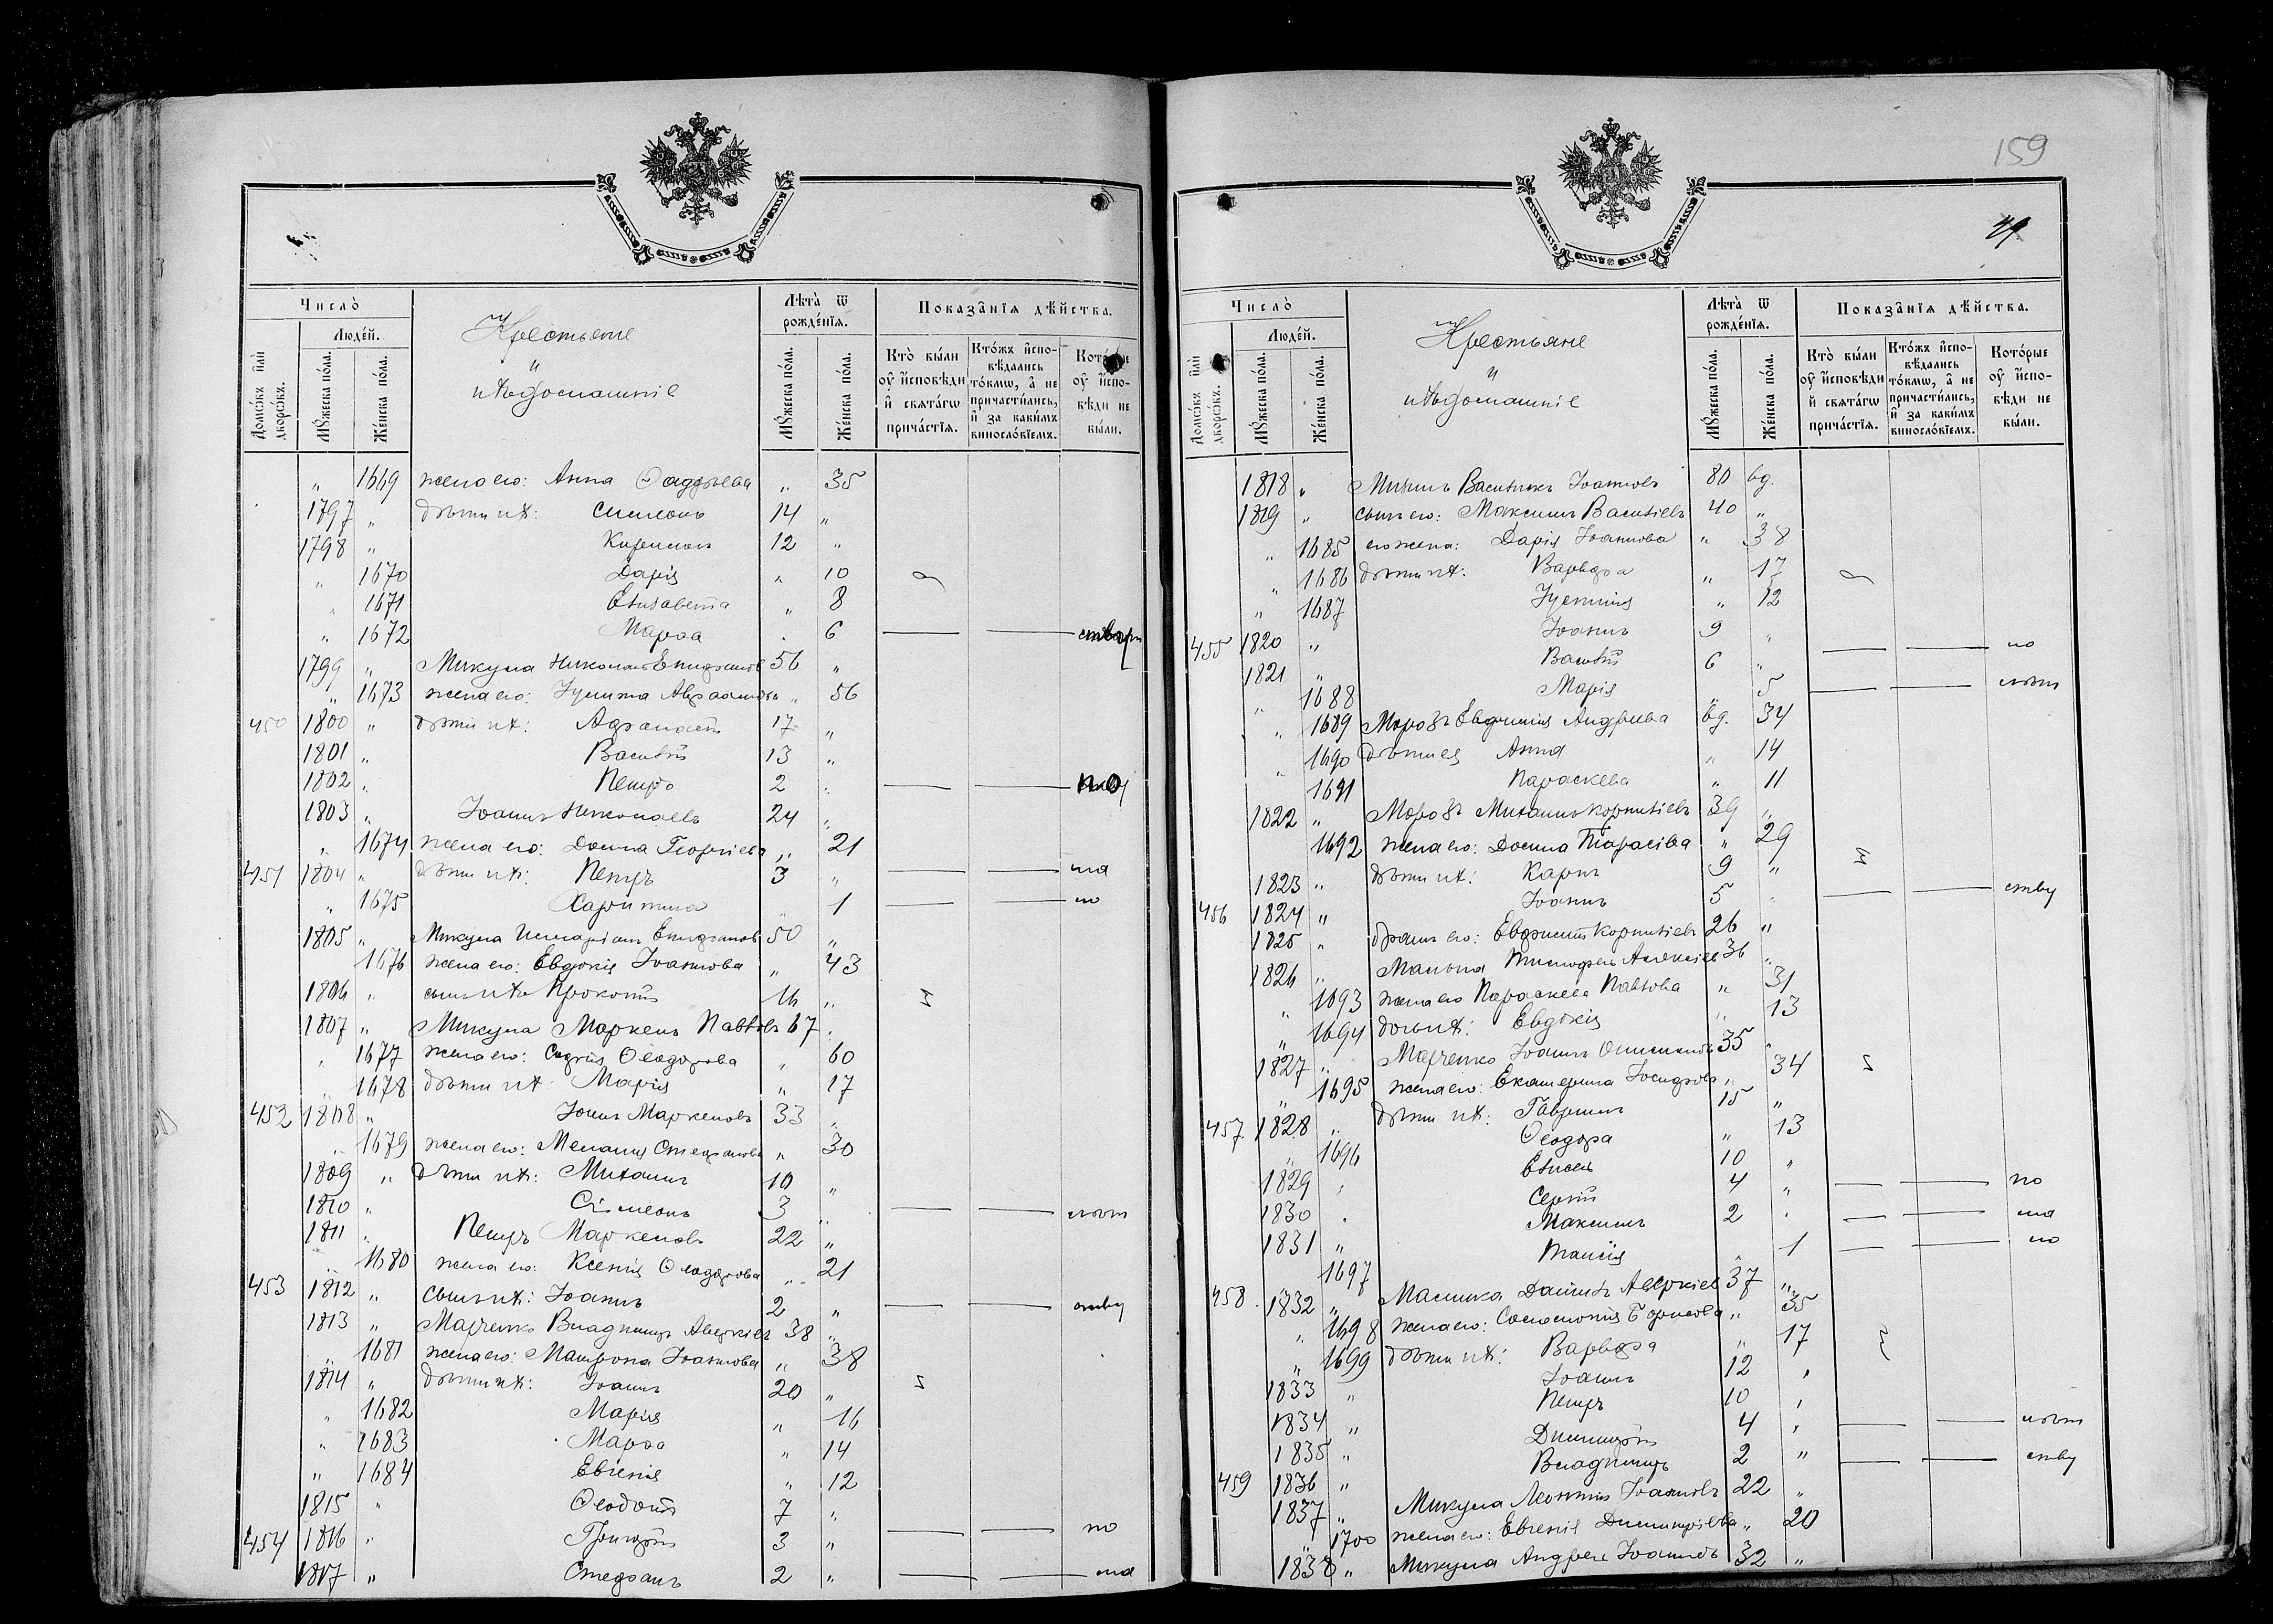 Число̀
Людéй.
Домо́въ и҆лѝ дворо́въ.
Мꙋ́жеска по́ла.
Же́нска по́ла.
Крестьяне
и
ихъ домашніе
Лѣта̀ ѿ рожде́нїѧ.
Мꙋ́жеска по́ла.
Же́нска по́ла.
Показа̑нїѧ дѣ́йства.
Кто̀ бы́ли оу҆ и҆сповѣди и҆ свѧта́гѡ прича́стїѧ.
Кто́жъ и҆спо-вѣдались то́кмѡ, а҆ не причасти́лись, и҆ за каки́мъ винослóвїемъ.
Кото́рые оу҆ и҆спо-вѣди не бы́ли.
„ 1669 жена его: Анна Ѳаддѣева „ 35
1797 „ дѣти ихъ: Симеонъ 14 „
1798 „ 12 „
„ 1670 Дарія „ 10
„ 1671 Елисавета „ 8
„ 1672 Марѳа „ 6
1799 „ Микула Николай Епифановъ 56 „
„ 1673 жена его: Іулитта „ 56
450 1800 „ дѣти ихъ: Афанасій 17 „
1801 „ Василій 13 „
1802 „ Петръ 2 „
1803 „ Іоаннъ Николаевъ 24 „
„ 1674 жена его: Домна Георгіева „ 21
451 1804 „ дѣти ихъ: Петръ 3 „ ма
„ 1675 Харитина „ 1 ло
1805 „ Микула Епифановъ 50 „
1676 жена его: Евдокія Іоаннова „ 43
1806 „ сынъ ихъ Прокопій 16 „
1807 „ Микула Маркелъ Павловъ 67 „
„ 1677 жена его: Софія Ѳеодорова „ 60
1678 дѣти ихъ: Марія „ 17
452 1808 „ Маркеловъ 33 „
„ 1679 жена его: Меланія Стефанова „ 30
1809 „ дѣти ихъ: Михаилъ 10 „
1810 „ Симеонъ 3 „ лѣт
1811 „ Петръ Маркеловъ 22 „
„ 1680 жена его: Ксенія Ѳеодорова „ 21
453 1812 „ сынъ ихъ: Іоаннъ 2 „ ству
1813 „ Марченко Владиміръ Аверкіевъ 38 „
„ 1681 жена его: Матрона Іоаннова „ 38
1814 „ дѣти ихъ: Іоаннъ 20 „
„ 1682 Марія „ 16
„ 1683 Марѳа „ 14
„ 1684 Евгенія „ 12
1815 „ Ѳеодотъ 7 „
454 1816 „ Григорій 3 „ по
1817 „ Стефанъ 2 „ ма
159
Число̀
Людéй.
Домо́въ и҆лѝ дворо́въ.
Мꙋ́жеска по́ла.
Же́нска по́ла.
Крестьяне
и
ихъ домашніе
Лѣта̀ ѿ рожде́нїѧ.
Мꙋ́жеска по́ла.
Же́нска по́ла.
Показа̑нїѧ дѣ́йства.
Кто̀ бы́ли оу҆ и҆сповѣди и҆ свѧта́гѡ прича́стїѧ.
Кто́жъ и҆спо-вѣдались то́кмѡ, а҆ не причасти́лись, и҆ за каки́мъ винослóвїемъ.
Кото́рые оу҆ и҆спо-вѣди не бы́ли.
1818 „ Василій Іоанновъ 80 вд.
1819 „ сынъ его: Максимъ Василіевъ 40 „
„ 1685 его жена: Дарія Іоаннова „ 38
„ 1686 дѣти ихъ: Варвара „ 17
„ 1687 „ 12
455 1820 „ Іоаннъ 9 „ ло
1821 „ Василій 6 „
„ 1688 Марія „ 5 лѣт
„ 1689 Морозъ Евфимія Андреева вд. 34
„ 1690 дѣти ея Анна „ 14
1691 Параскева „ 11
1822 „ Морозъ Михаилъ Корниліевъ 39 „
1692 жена его: Домна Тарасіева „ 29
1823 „ дѣти ихъ: Карпъ 9 „
456 1824 „ Іоаннъ 5 „ ству
1825 „ братъ его: Корниліевъ 26 „
1826 „ Тимофей Алексіев 36 „
„ 1693 жена его Параскева Павлова „ 31
„ 1694 дочь ихъ: Евдокія „ 13
1827 „ Марченко Іоаннъ Онисимовъ 35 „
„ 1695 жена его: Екатерина Іосифова „ 34
457 1828 „ дѣти ихъ: Гавріилъ 15 „
„ 1696 Ѳеодора „ 13
1829 „ Елисей 10 „
1830 „ Сергій 4 „ по
1831 „ Максимъ 2 „ ма
1697 Таисія „ 1 ло
458 1832 „ Данiилъ Аверкіев 37 „
„ 1698 жена его: Соломонія Борисова „ 35
„ 1699 дѣти ихъ: Варвара „ 17
1833 „ Іоаннъ 12 „
1834 „ Петръ 10 „
1835 „ Димитрій 4 „ лѣт
459 1836 „ Владиміръ 2 „ ству
1837 „ Микула Леонтій Іоанновъ 22 „
„ 1700 жена его: Евгенія Димитріева „ 20
1838 „ Микула Андрей Іоанновъ 32 „